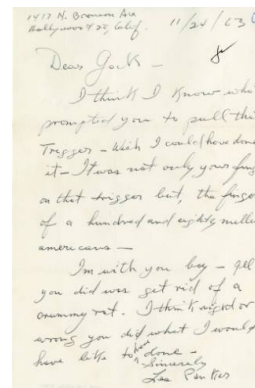 1417 N. Bronson Ave
Hollywood 28, Calif. 11/24/63
Dear Jack -
I think I know who
prompted you to pull this
Trigger - Wish I could have done
it - It was not only your fing
on that trigger but, the finge
of a hundred and eighty millio
americans -
Im with you boy - All
you did was get rid of a
crummy rat. I think right or
wrong you did what I would
have like to have done -
Sincerely
Les